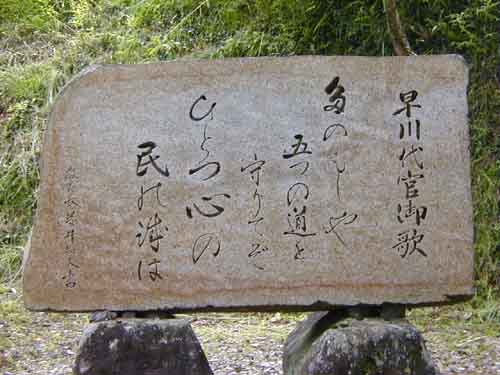 早川代官御歌
多のもしや
五つの道を
守りてぞ
ひとつ心の
民の誠は